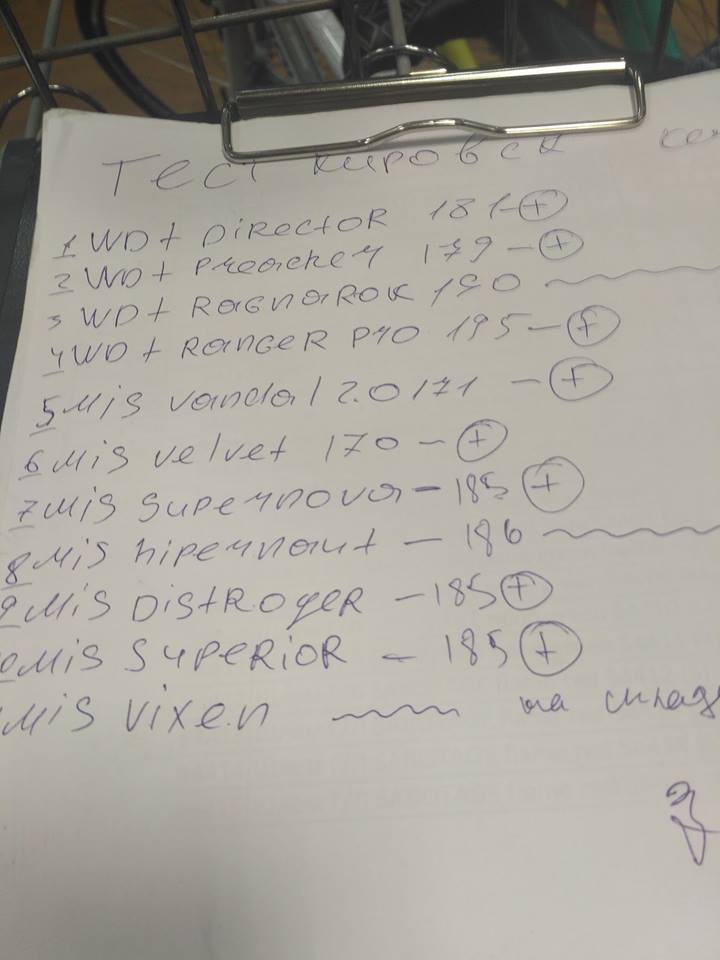 Тест Кировск
1 WD+ DiREctOR 181 - +
2 WD+ Preacher 179 - +
3 WD+ RAGNAROK 190
4 WD+ RANGER PrO 195 - +
5 Mis vandal 2.0 171 - +
6 Mis velvet 170 - +
7 Mis supernova - 185 +
8 Mis hipernaut - 186
9 Mis DistROyER - 185 +
0 Mis SuPERiOR - 185 +
Mis vixen на склад